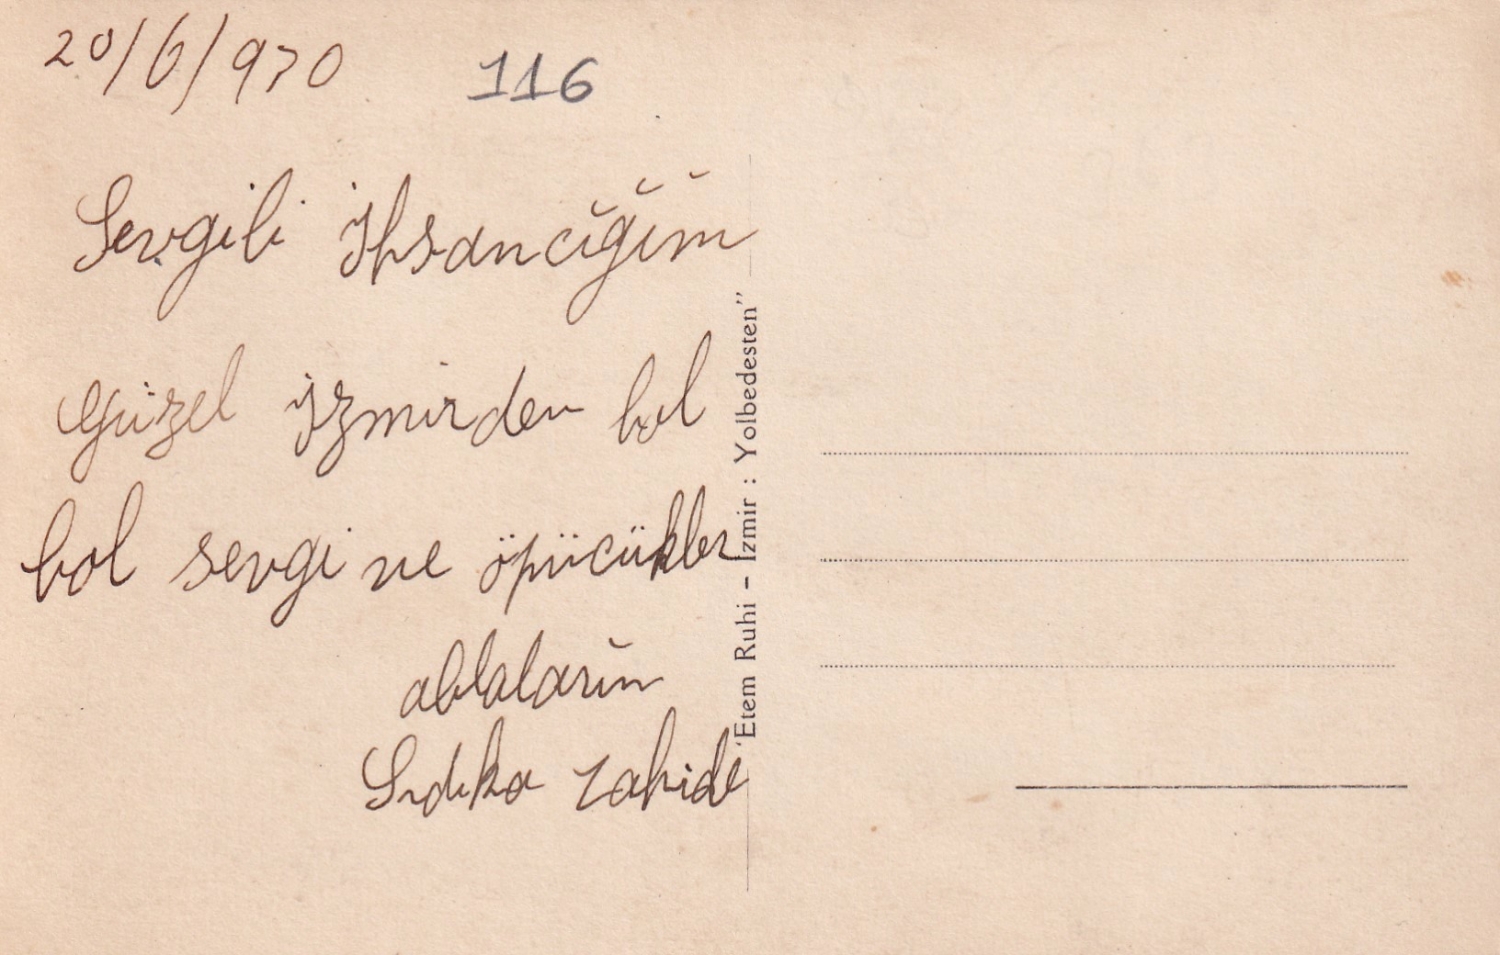 20/6/970
116
Sevgili İhsancığım
güzel İzmirden bol
bol sevgi ve öpücükler
ablaların
Sıdıka Zahide
"Etem Ruhi - İzmir : Yolbedesten"